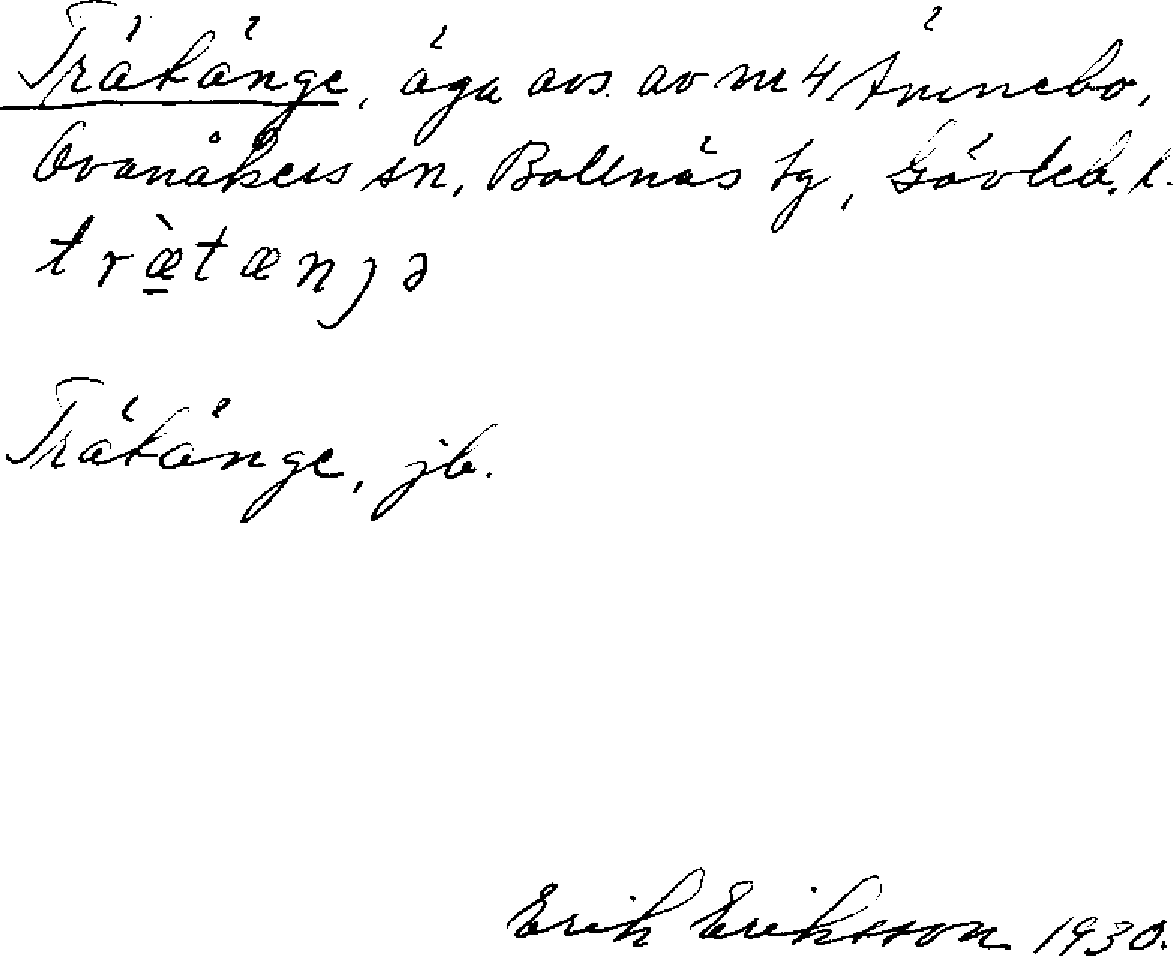 Trätänge, äga avs. av nr 4
Ovanåkers sn, Bollnäs tg, Gävleb. l.
trætænjə
Trätänge, jb.
Erik Eriksson 1930.